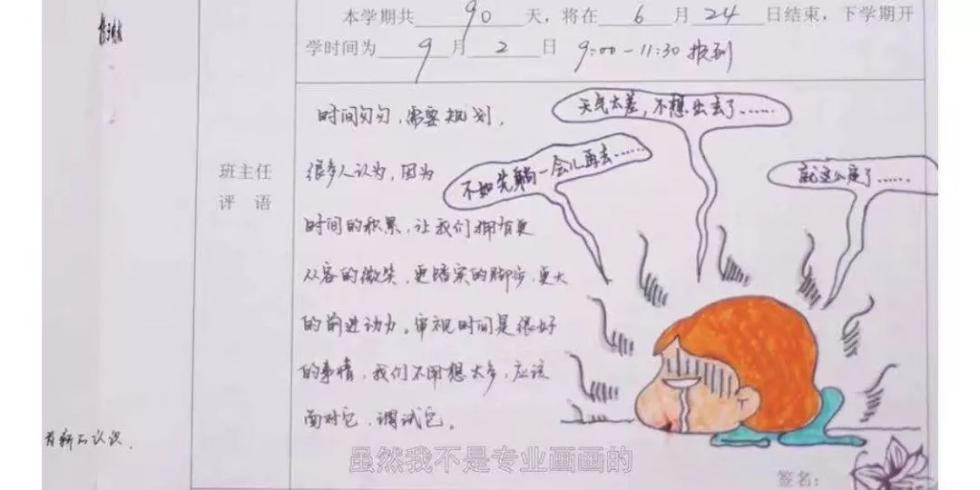 本学期共 90 天,将在 6 月 24 日结束,下学期开
学时间为 9 月 2 日 9:00-11:30 报到
班主任
评 语
时间匆匆,需要规划,
很多人认为,因为
时间的积累,让我们拥有更
从容的微笑,更踏实的脚步,更大
的前进动力。审视时间是很好
的事情,我们不用想太多,应该
面对它,调试它。
天气太差,不想出去了……
不如先躺一会儿再去……
就这么废了……
虽然我不是专业画画的
签名: